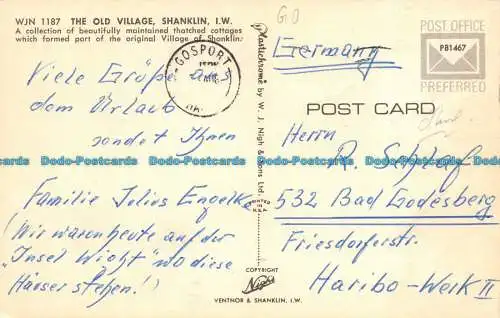 WJN 1187 THE OLD VILLAGE, SHANKLIN, I.W.
A collection of beautifully maintained thatched cottages
which formed part of the original Village of Shanklin.
Viele Grüße aus
dem Urlaub
sendet Ihnen
Familie Julius Engelke
(Wir waren heute auf der
"Insel Wight" wo diese
Häuser stehen!)
GOSPORT
Plastichrome by W. J. Nigh & Sons Ltd.
PRINTED IN
COPYRIGHT
Nigh
VENTNOR & SHANKLIN, I.W.
GO
Germany
POST OFFICE
PB1467
PREFERRED
POST CARD
Herrn
R. Schlaf
532 Bad Godesberg
Friesdorferstr.
Haribo-Werk II
Dodo-Postcards Dodo-Postcards Dodo-Postcards Dodo-Postcards
Dodo-Postcards Dodo-Postcards Dodo-Postcards Dodo-Postcards